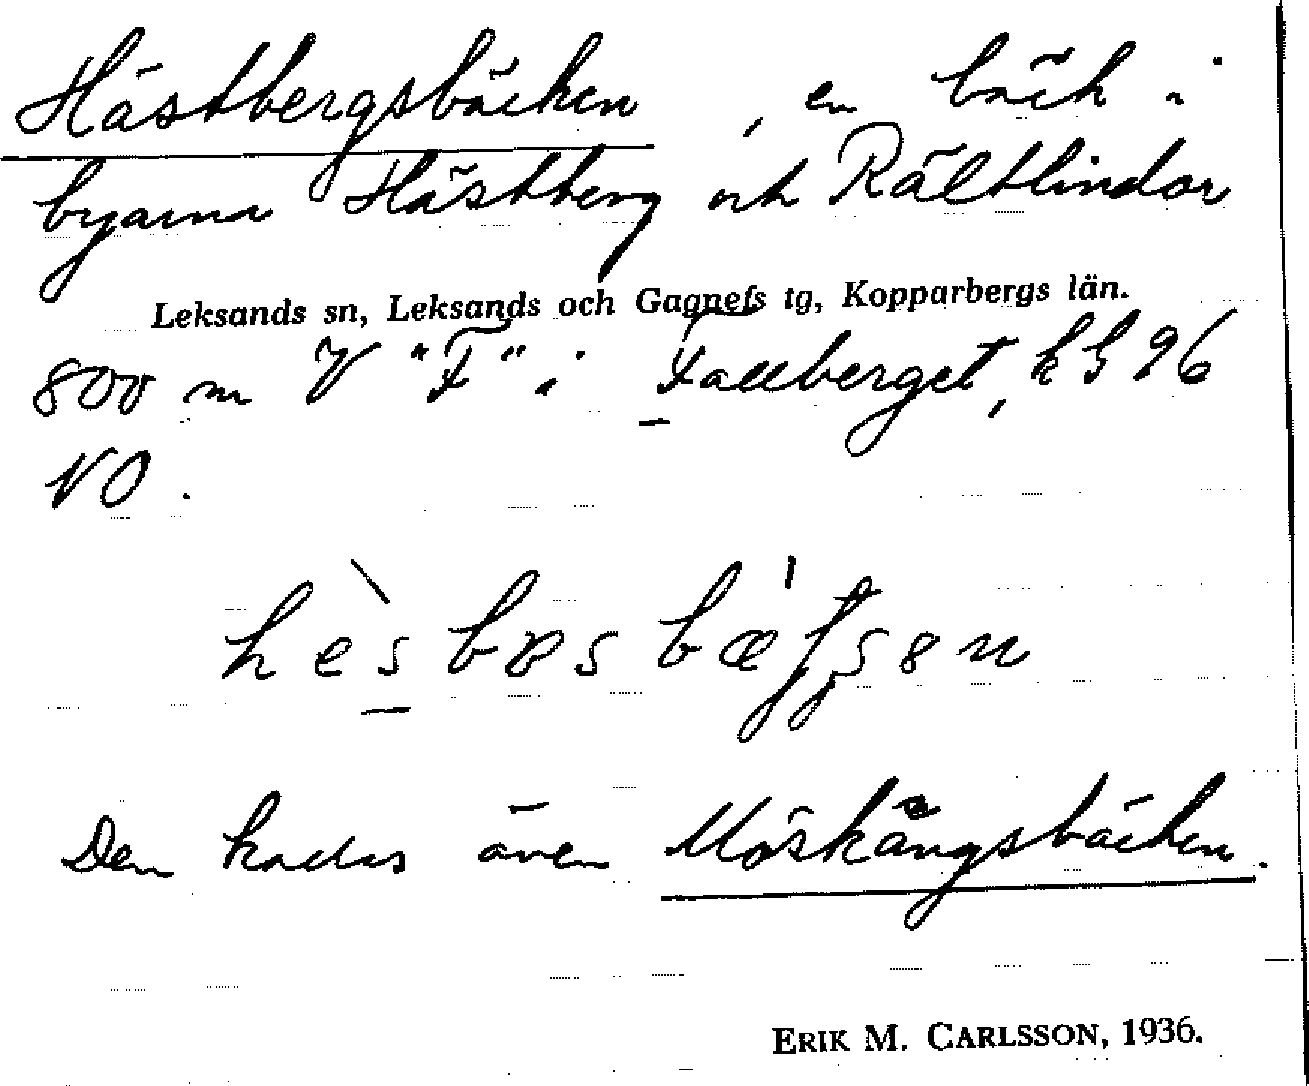 Hästbergsbäcken, en bäck i
byarna Hästberg och Rältlindor
Leksands sn, Leksands och Gagnefs tg, Kopparbergs län.
800 m V "F" i Fallberget, kG 96
NO.
Den kallas även Mörkängsbäcken.
ERIK M. CARLSSON, 1936.